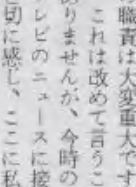 職責は大変重大です
これは改めて言うこ
ありませんが、今時の
レビのニュースに接
切に感じ、ここに私